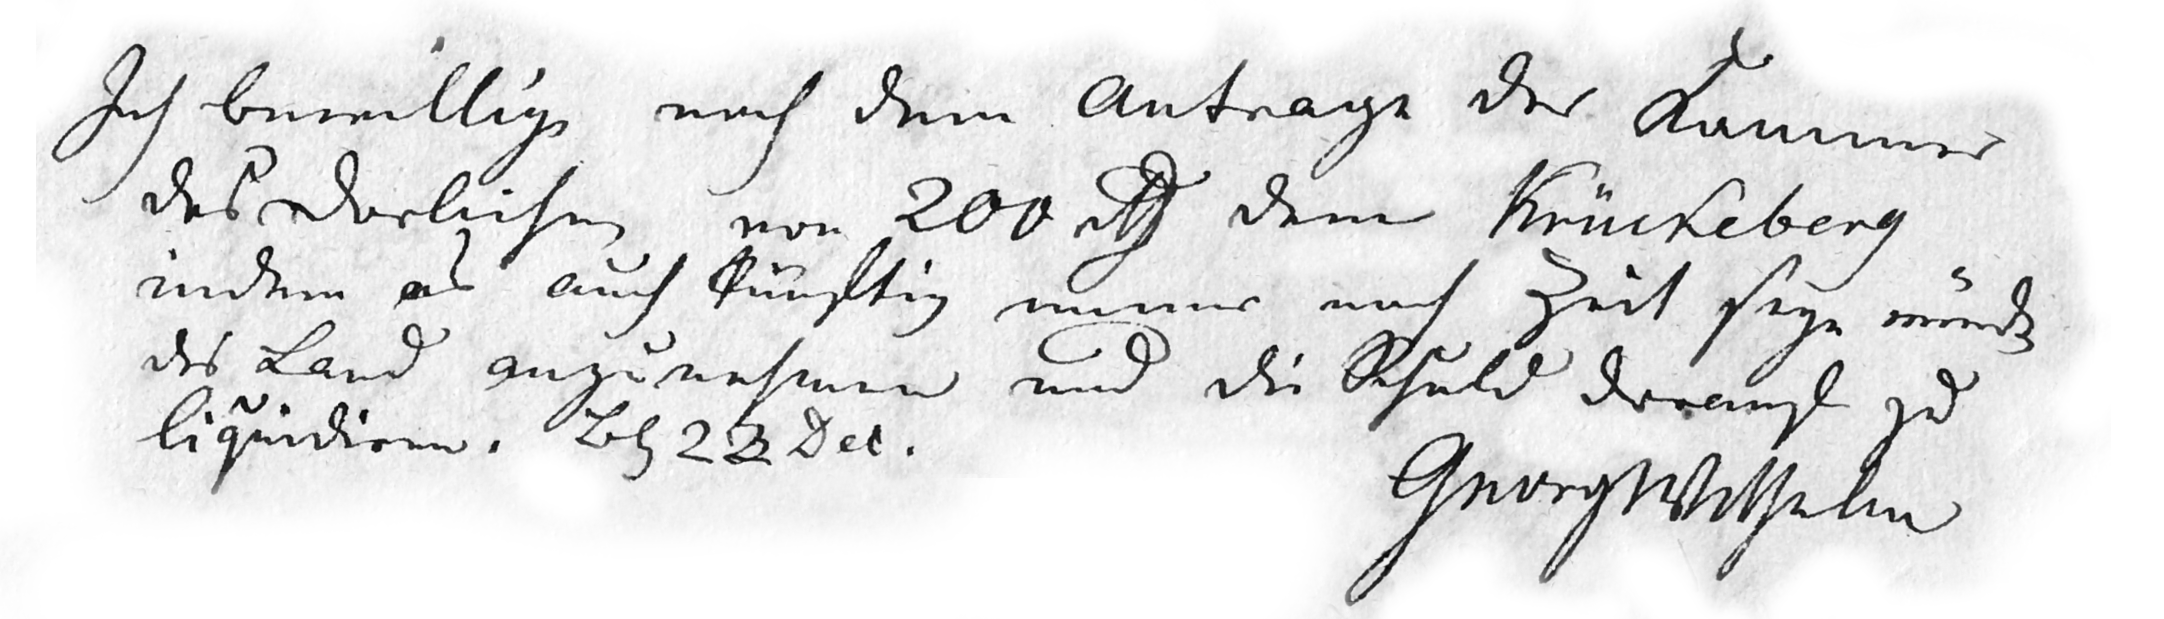 Ich bewillige nach dem Antrage der Kammer
das Darleihen von 200 rth dem Krückeberg
indem es auch künftig immer noch Zeit seyn würde
das Land anzunehmen und die Schuld darauf zu
liquidiren. Bbg 22 Dec.
Georg Wilhelm